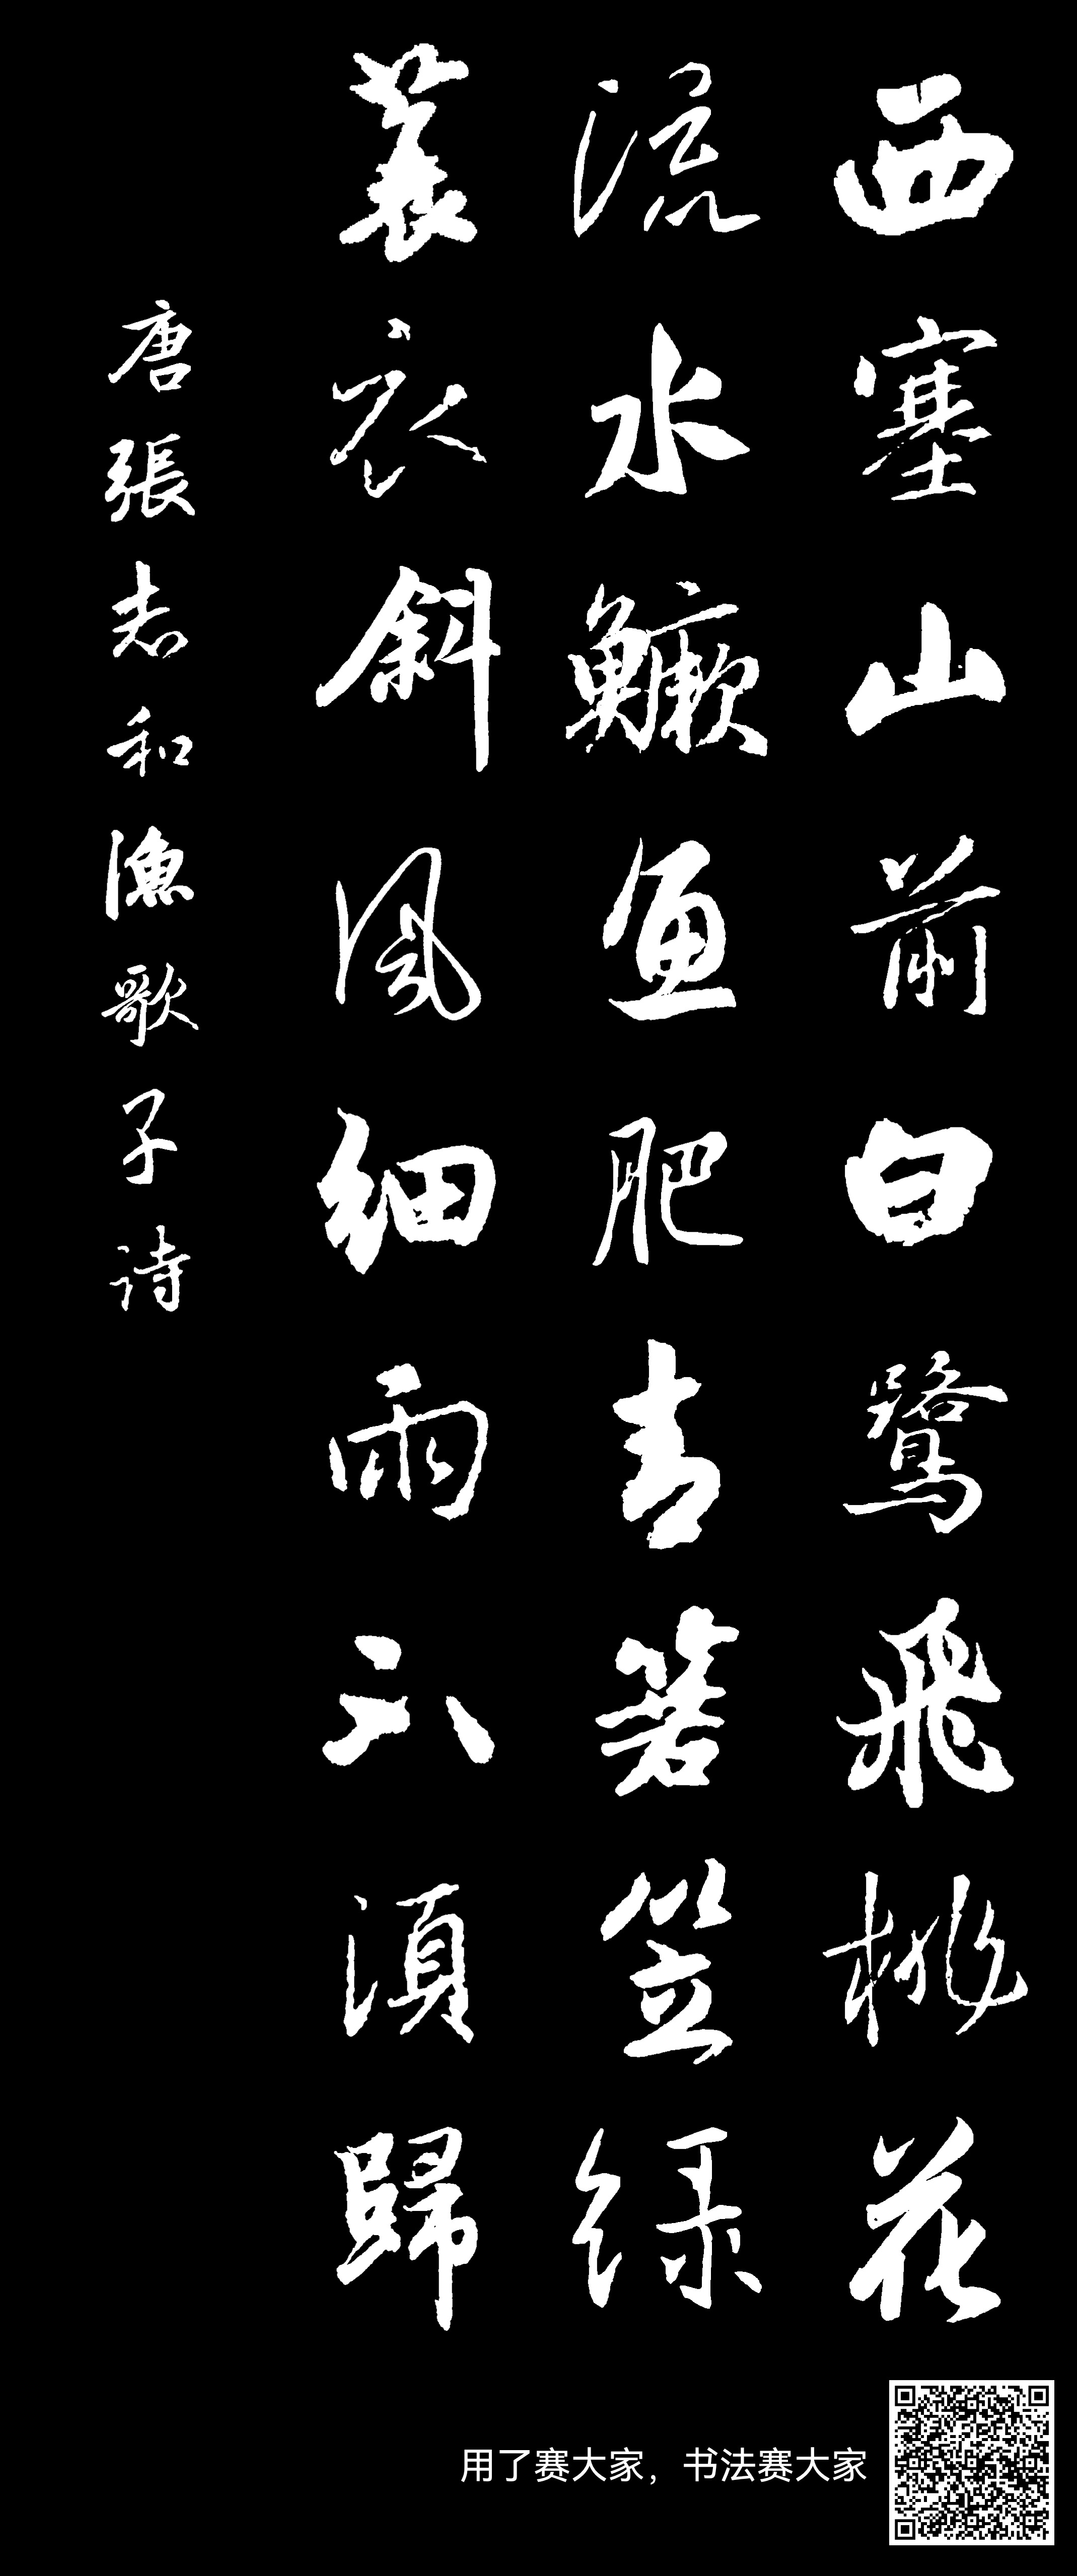 西塞山前白鷺飛桃花
流水鱖魚肥青箬笠綠
蓑衣斜風細雨不須歸
唐張志和漁歌子詩
用了赛大家，书法赛大家